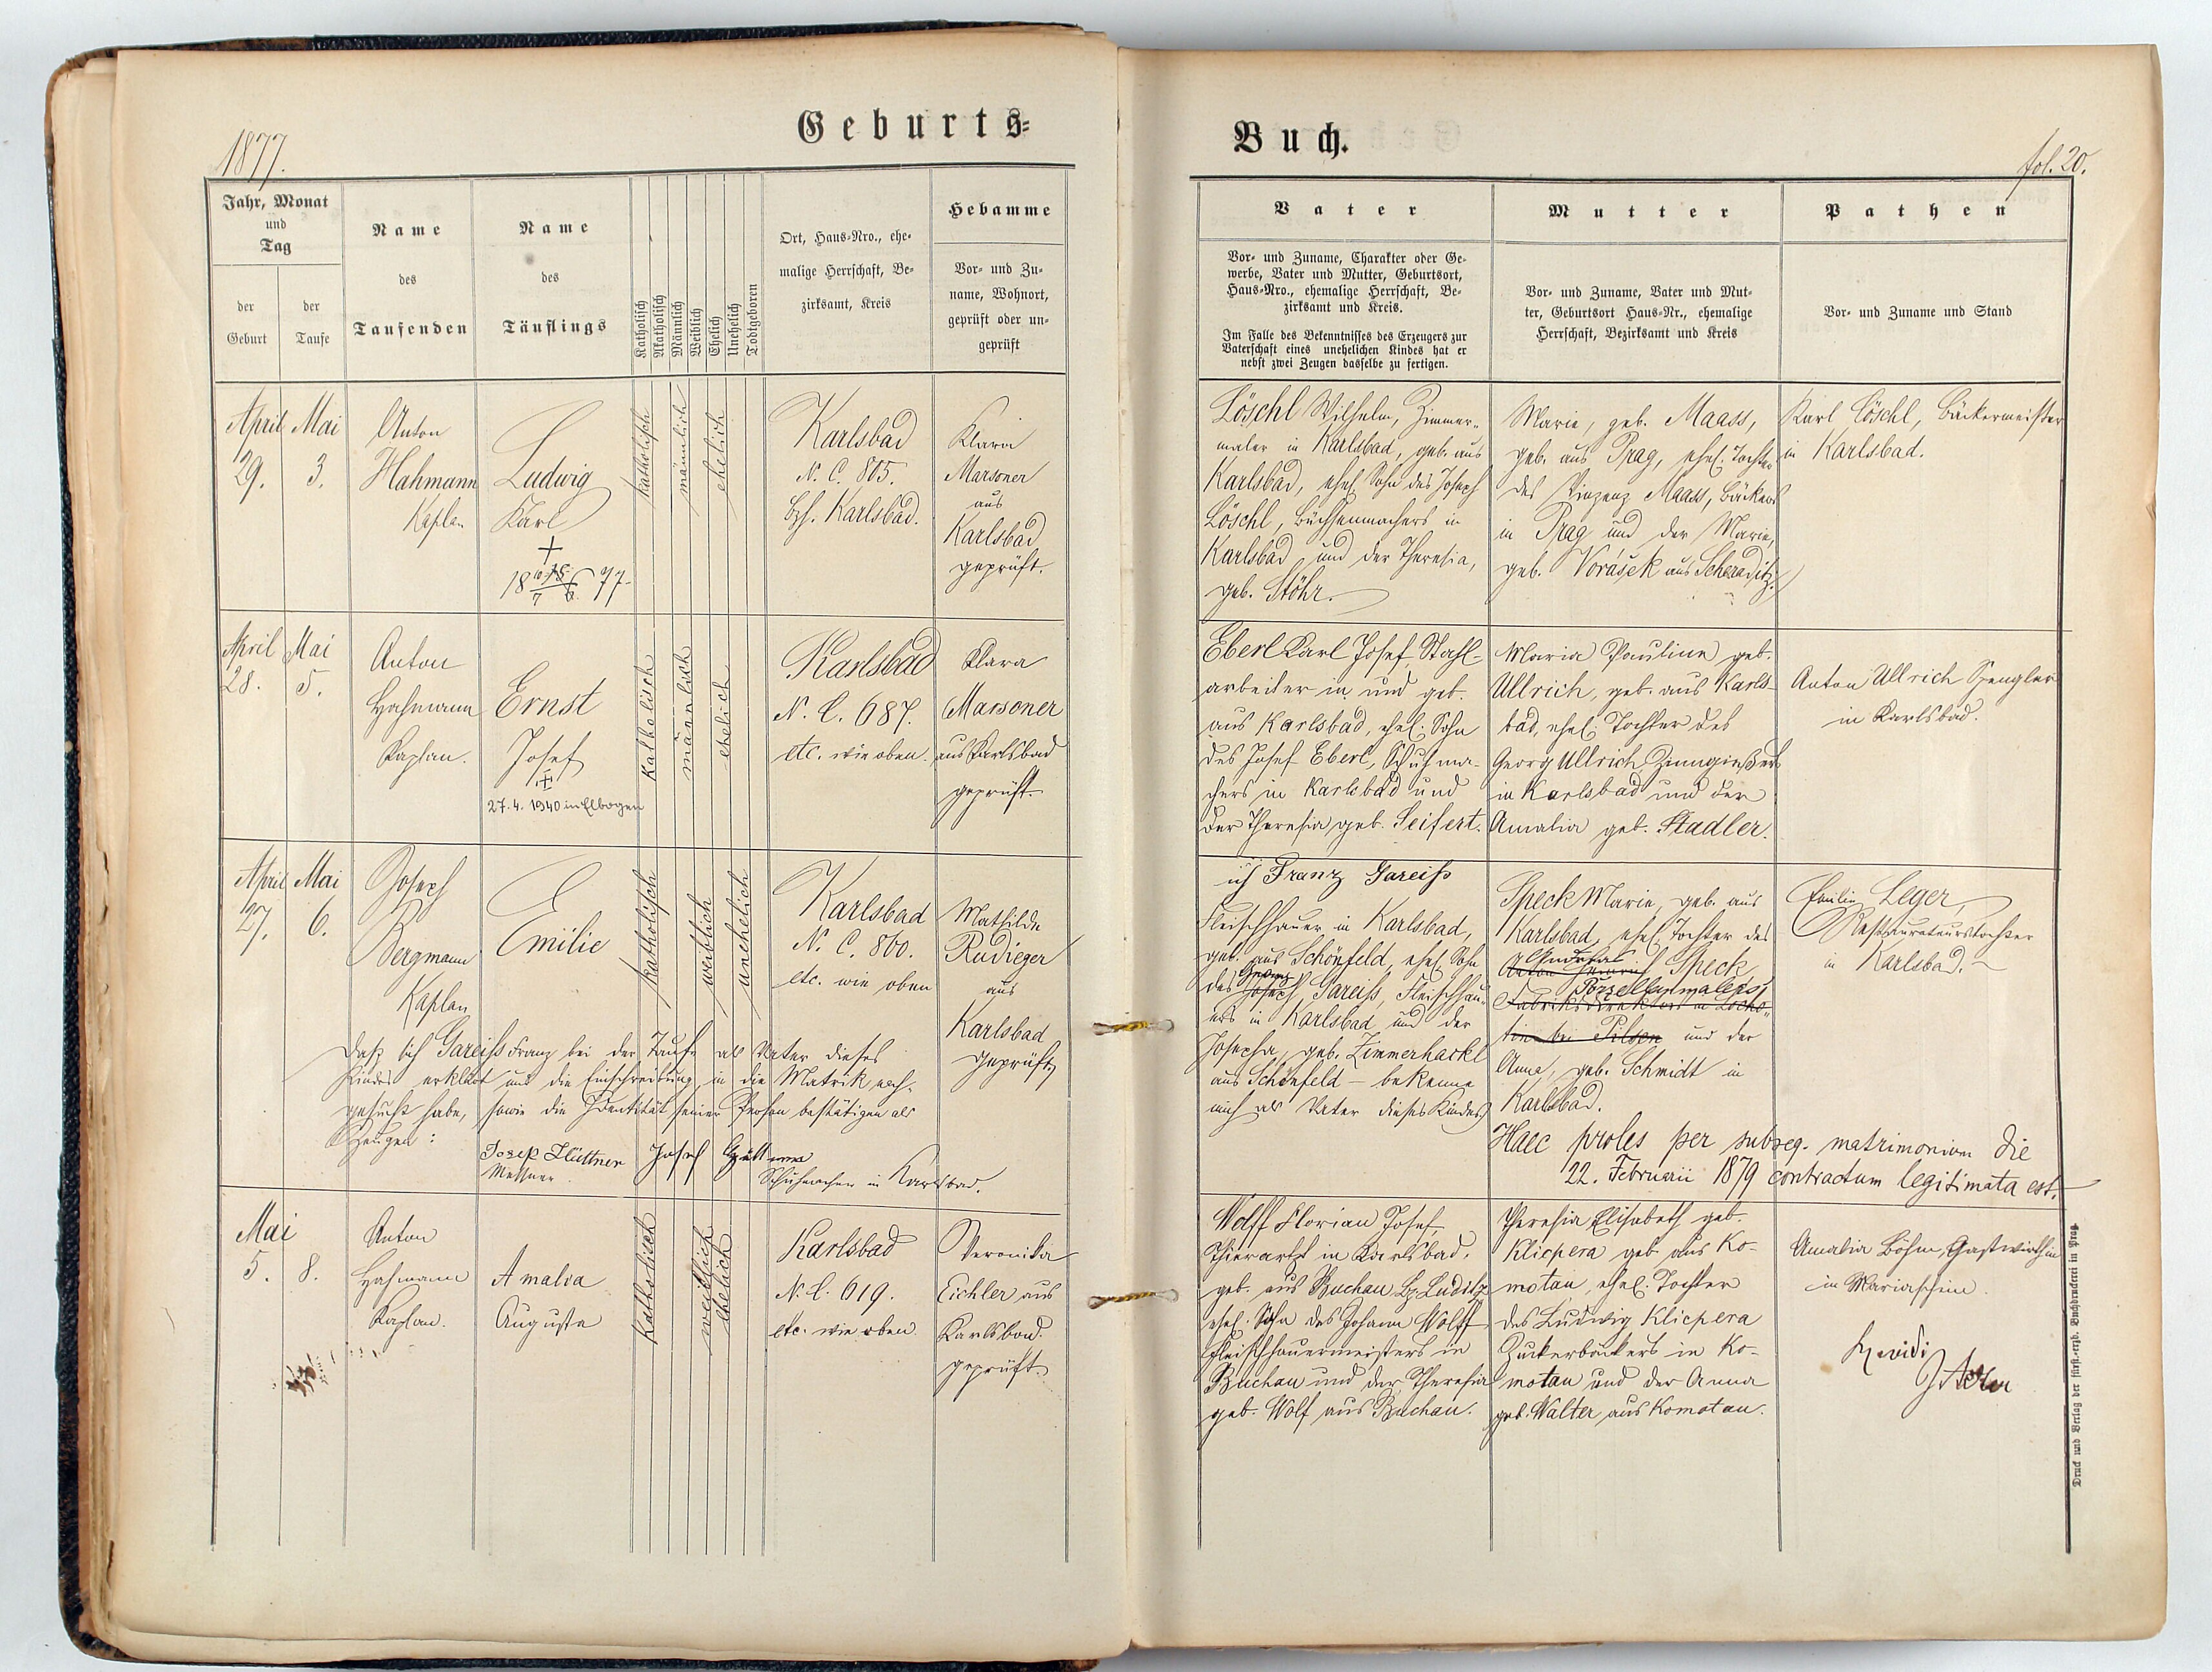 1877.
Geburts=
Jahr, Monat
und
Tag
der
Geburt
der
Taufe
Name
des
Taufenden
Name
des
Täuflings
Katholisch
Akatholisch
Männlich
Weiblich
Ehelich
Unehelich
Todtgeboren
Ort, Haus=Nro., ehe=
malige Herrschaft, Be=
zirksamt, Kreis
Hebamme
Vor= und Zu=
name, Wohnort,
geprüft oder un=
geprüft
April
29.
Mai
3.
Anton
Hahmann
Kaplan
Ludwig
Karl
katholisch
männlich
ehelich
Karlsbad
N. C. 805.
Bzh. Karlsbad.
Klara
Marsoner
aus
Karlsbad
geprüft.
April
28.
Mai
5.
Anton
Hahmann
Kaplan.
Ernst
Josef
27. 4. 1940 in Elbogen
katholisch
männlich
ehelich
Karlsbad
N. C. 687.
etc. wie oben.
Klara
Marsoner
aus Karlsbad
geprüft.
April
27.
Mai
6.
Joseph
Bergmann
Kaplan
Emilie
katholisch
weiblich
unehelich
Karlsbad
N. C. 860.
etc. wie oben
Mathilde
Rudieger
aus
Karlsbad
geprüft
Daß sich Gareiß Franz bei der Taufe als Vater dieses
Kindes erklärt und die Einschreibung in die Matrik nach=
gesucht habe, sowie die Identität seiner Person bestätigen als
Zeugen:
Josef Hüttner
Messner
Josef
Schuhmacher in Karlsbad.
Mai
5.
8.
Anton
Hahmann
Kaplan.
Amalia
Augusta
katholisch
weiblich
ehelich
Karlsbad
N. C. 619.
etc. wie oben
Veronika
Eichler aus
Karlsbad.
geprüft.
Buch.
fol. 20.
Vater
Vor= und Zuname, Charakter oder Ge=
werbe, Vater und Mutter, Geburtsort,
Haus=Nro., ehemalige Herrschaft, Be=
zirksamt und Kreis.
Im Falle des Bekenntnisses des Erzeugers zur
Vaterschaft eines unehelichen Kindes hat er
nebst zwei Zeugen dasselbe zu fertigen.
Mutter
Vor= und Zuname, Vater und Mut=
ter, Geburtsort Haus=Nr., ehemalige
Herrschaft, Bezirksamt und Kreis
Pathen
Vor= und Zuname und Stand
Löschl Wilhelm, Zimmer=
maler in Karlsbad, geb. aus
Karlsbad, ehel. Sohn des Joseph
Löschl, Büchsenmachers in
Karlsbad und der Theresia,
geb. Stöhr.
Marie, geb. Maass,
geb. aus Prag, ehel. Tochter
des Vinzenz Maass, Bäckers
in Prag und der Marie,
geb. Vorášek aus Scheraditz.
Karl Löschl, Bäckermeister
in Karlsbad.
Eberl Karl Josef, Stahl=
arbeiter in und geb.
aus Karlsbad, ehel. Sohn
des Josef Eberl, Schuhma=
chers in Karlsbad und
der Theresia geb. Seifert.
Maria Pauline geb.
Ullrich, geb. aus Karls=
bad, ehel. Tochter des
Georg Ullrich Zinngießers
in Karlsbad und der
Amalia geb. Stadler.
Anton Ullrich Spengler
in Karlsbad.
ich Franz Gareiß
Fleischhauer in Karlsbad,
geb. aus Schönfeld, ehel. Sohn
des Joseph Gareiß, Fleischhau=
ers in Karlsbad und der
Josepha, geb. Zimmerhackl
aus Schönfeld – bekenne
mich als Vater dieses Kindes
Speck Marie, geb. aus
Karlsbad, ehel. Tochter des
Andreas
Anton Speck
Porzellanmalers
Fabriksdirektors in Locho=
tin bei Pilsen und der
Anna, geb. Schmidt in
Karlsbad.
Emilie Leger,
Restaurateurstochter
in Karlsbad.
Haec proles per subseq. matrimonium die
22. Februarii 1879 contractum legitimata est.
Wolff Florian Josef,
Thierarzt in Karlsbad,
geb. aus Buchau Bz. Luditz
ehel. Sohn des Johann Wolff
Fleischhauermeisters in
Buchau und der Theresia
geb. Wolf aus Buchau.
Theresia Elisabeth geb.
Klicpera geb. aus Ko=
motau, ehel. Tochter
des Ludwig Klicpera
Zuckerbäckers in Ko=
motau und der Anna
geb. Walter aus Komotau.
Amalia Böhm, Gastwirthin
in Mariaschein.
Druck und Verlag der fürst.=erzb. Buchdruckerei in Prag.